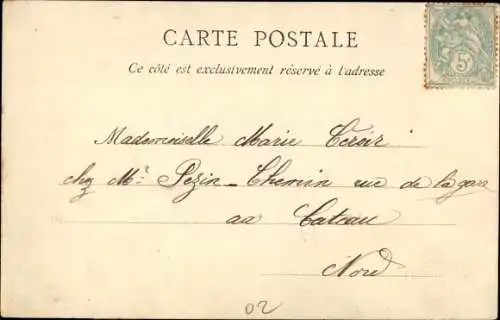 CARTE POSTALE
Ce côté est exclusivement réservé à l'adresse
5c
Mademoiselle Marie Teroir
chez Mr. Pezin-Chemin rue de la gare
au Cateau
Nord
02